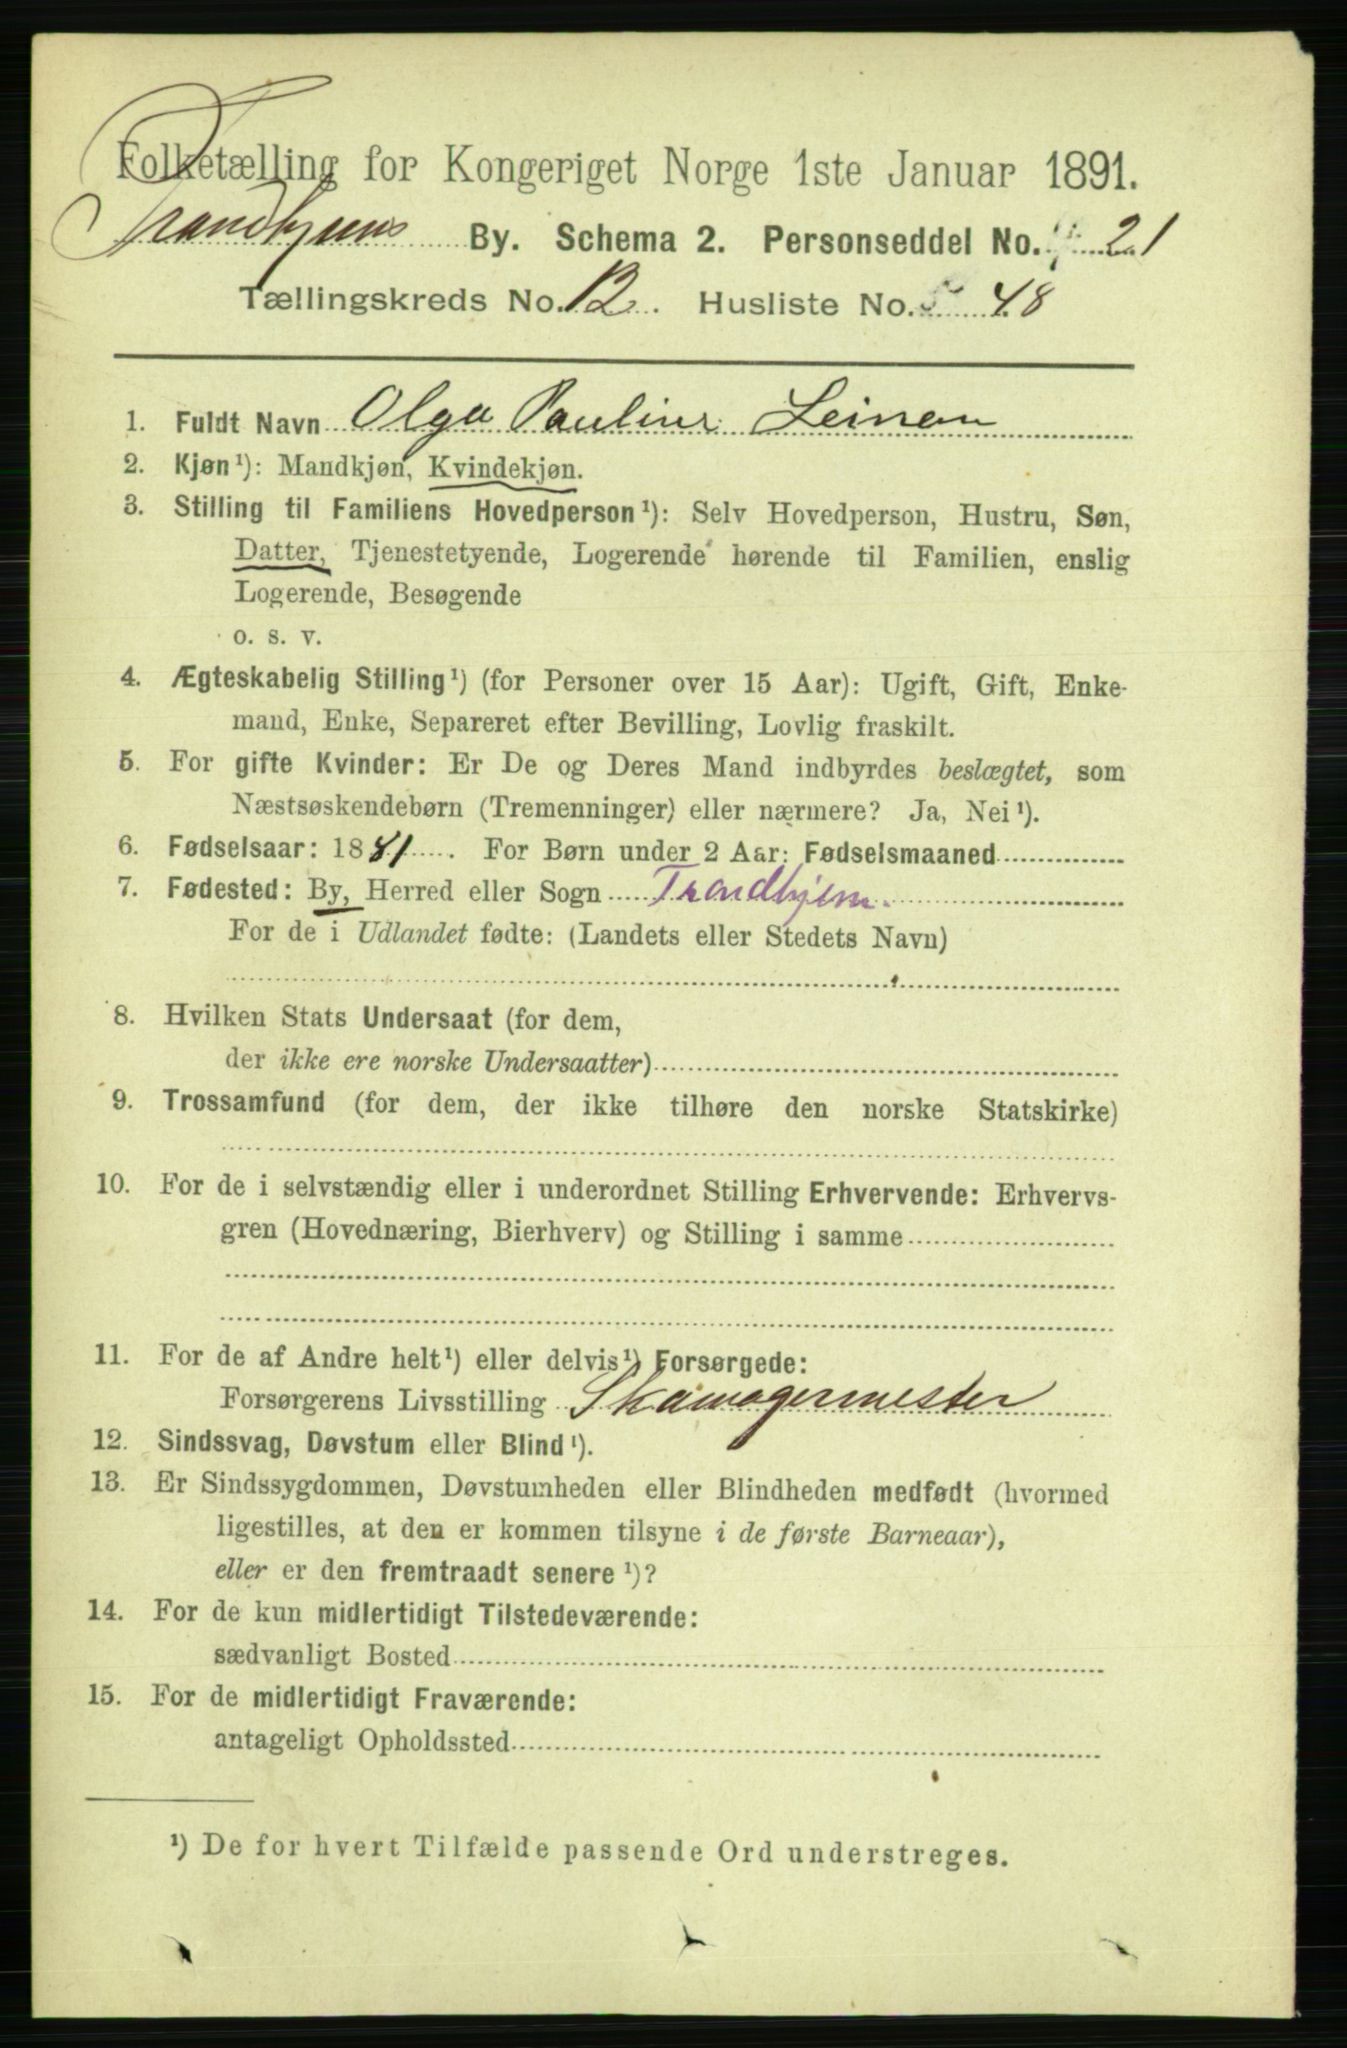 Folketælling for Kongeriget Norge 1ste Januar 1891.
Trondhjems By. Schema 2. Personseddel No. 21
Tællingskreds No. 12. Husliste No. 48
1. Fuldt Navn Olga Pauline Leinan
2. Kjøn¹): Mandkjøn, Kvindekjøn.
3. Stilling til Familiens Hovedperson¹): Selv Hovedperson, Hustru, Søn,
Datter, Tjenestetyende, Logerende hørende til Familien, enslig
Logerende, Besøgende
o. s. v.
4. Ægteskabelig Stilling¹) (for Personer over 15 Aar): Ugift, Gift, Enke-
mand, Enke, Separeret efter Bevilling, Lovlig fraskilt.
5. For gifte Kvinder: Er De og Deres Mand indbyrdes beslægtet, som
Næstsøskendebørn (Tremenninger) eller nærmere? Ja, Nei¹).
6. Fødselsaar: 1881. For Børn under 2 Aar: Fødselsmaaned
7. Fødested: By, Herred eller Sogn Trondhjem.
For de i Udlandet fødte: (Landets eller Stedets Navn)
8. Hvilken Stats Undersaat (for dem,
der ikke ere norske Undersaatter)
9. Trossamfund (for dem, der ikke tilhøre den norske Statskirke)
10. For de i selvstændig eller i underordnet Stilling Erhvervende: Erhvervs-
gren (Hovednæring, Bierhverv) og Stilling i samme
11. For de af Andre helt¹) eller delvis¹) Forsørgede:
Forsørgerens Livsstilling Skomagermester
12. Sindssvag, Døvstum eller Blind¹).
13. Er Sindssygdommen, Døvstumheden eller Blindheden medfødt (hvormed
ligestilles, at den er kommen tilsyne i de første Barneaar),
eller er den fremtraadt senere¹)?
14. For de kun midlertidigt Tilstedeværende:
sædvanligt Bosted
15. For de midlertidigt Fraværende:
antageligt Opholdssted
¹) De for hvert Tilfælde passende Ord understreges.